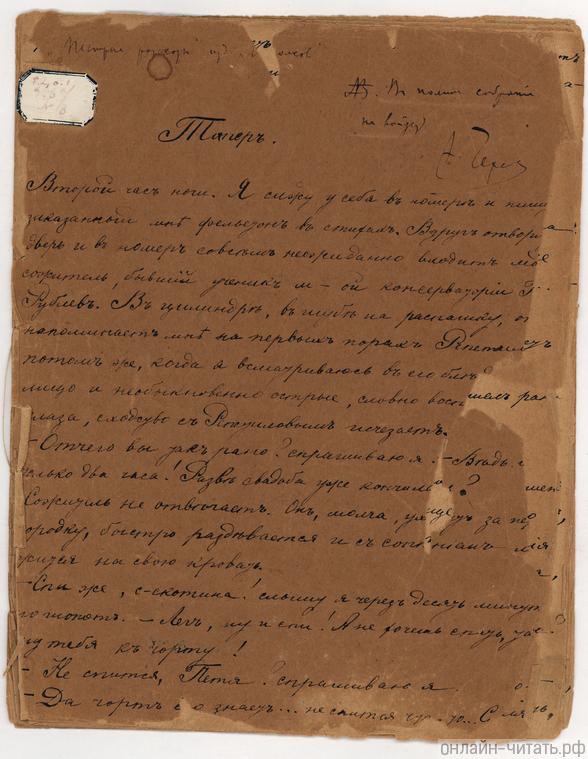 "Пестрые рассказы" изд.
В полное собрание
не войдет
А. Чехов
Таперъ.
Второй часъ ночи. Я сижу у себя въ номерѣ и пишу
заказанный мнѣ фельетонъ въ стихахъ. Вдругъ отворя
дверь и въ номеръ совсѣмъ неожиданно входитъ мой
сожитель, бывшій ученикъ м—ой консерваторіи
Рублевъ. Въ цилиндрѣ, въ шубѣ на распашку, он
напоминаетъ мнѣ на первыхъ порахъ Репетилова
потомъ же, когда я всматриваюсь въ его блѣд
лицо и необыкновенно острые, словно воспал
глаза, сходство съ Репетиловымъ исчезаетъ.
— Отчего вы такъ рано? спрашиваю я. — Вѣдь
только два часа! Развѣ свадьба уже кончил
Сожитель не отвѣчаетъ. Онъ, молча, уходитъ за пер
городку, быстро раздѣвается и съ сопѣніемъ
жится на свою кровать.
— Спи же, с-скотина! слышу я черезъ десять минутъ
его шопотъ. — Легъ, ну и спи! А не хочешь спать, такъ
ну тебя къ чорту!
— Не спится, Петя? спрашиваю я.
— Да чортъ его знаетъ... не спится что-то... Смѣхъ
онлайн-читать.рф